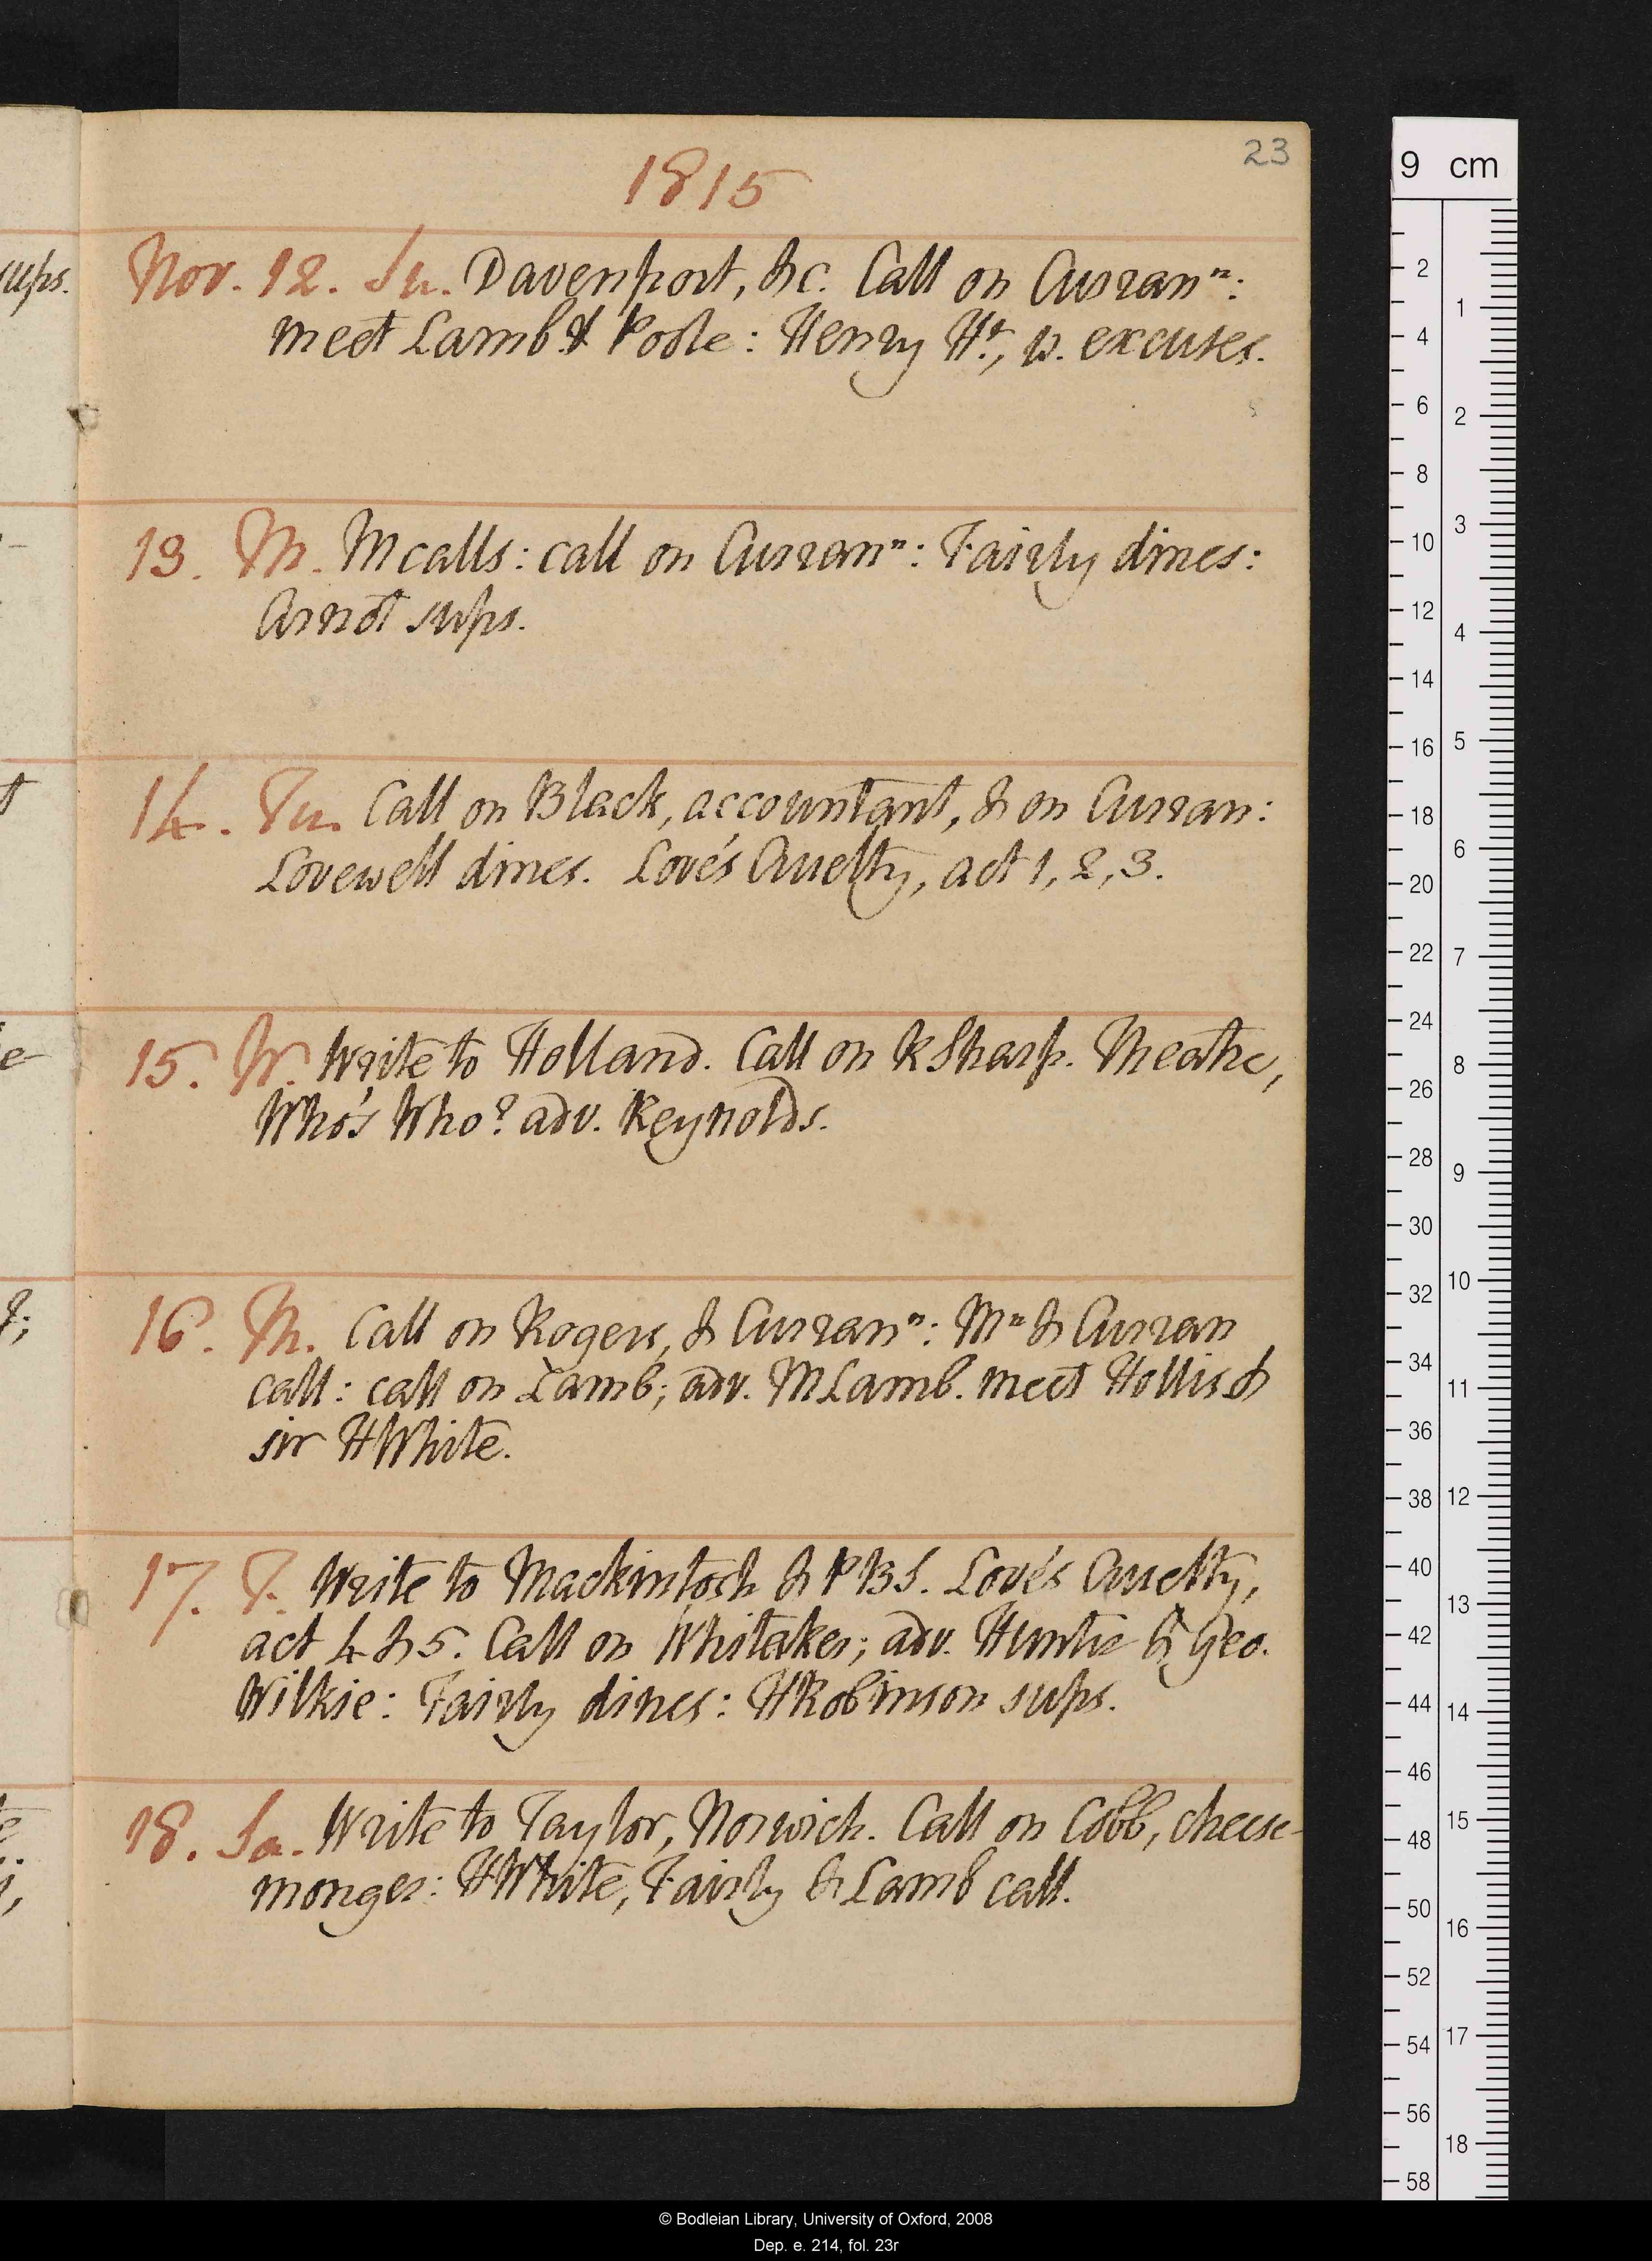 23
1815
ups.
Nov. 12. Su. Davenport, &c. Call on Curran n:
meet Lamb & Poole: Henry Ht, p. excuses.
13. M. M calls: call on Curran n: Fairly dines:
Arnot sups.
14. Tu. Call on Black, accountant, & on Curran:
Lovewell dines. Love's Cruelty, act 1, 2, 3.
15. W. Write to Holland. Call on R Sharp. Theatre,
Who's Who? adv. Reynolds.
16. Th. Call on Rogers, & Curran n: M n & Curran
call: call on Lamb; adv. M Lamb. meet Hollis &
sir H White.
17. F. Write to Mackintosh & PBS. Love's Cruelty,
act 4 & 5. Call on Whitaker; adv. Hunter & Geo.
Wilkie: Fairly dines: H Robinson sups.
18. Sa. Write to Taylor, Norwich. Call on Cobb, cheese-
monger: H White, Fairly & Lamb call.
9 cm
2
4
6
8
10
12
14
16
18
20
22
24
26
28
30
32
34
36
38
40
42
44
46
48
50
52
54
56
58
1
2
3
4
5
6
7
8
9
10
11
12
13
14
15
16
17
18
© Bodleian Library, University of Oxford, 2008
Dep. e. 214, fol. 23r